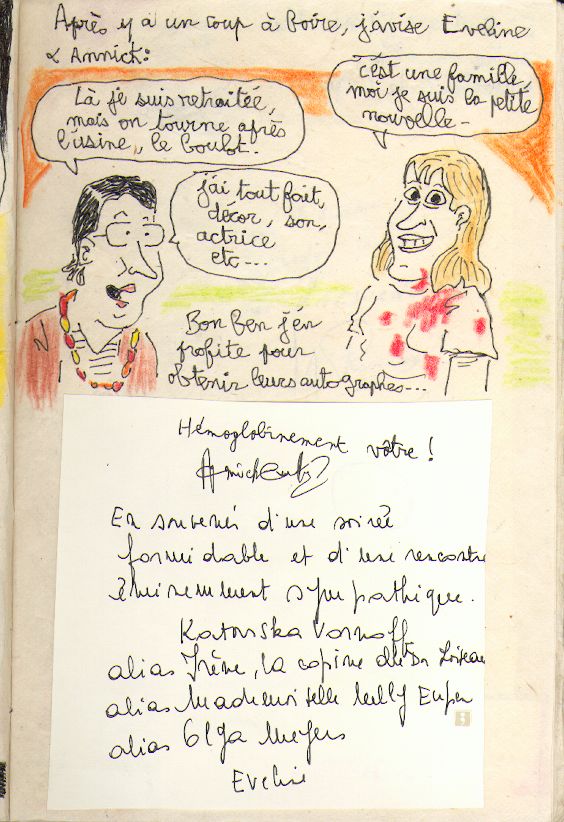 Après y a un coup à boire, j'avise Eveline
& Annick:
Là je suis retraitée,
mais on tourne après
l'usine, le boulot.
c'est une famille,
moi je suis la petite
nouvelle -
j'ai tout fait,
décor, son,
actrice
etc ...
Bon Ben j'en
profite pour
obtenir leurs autographes...
Hémoglobinement vôtre !
En souvenir d'une soirée
formidable et d'une rencontre
éminemment sympathique.
Katouska Vornoff
alias Irène, la copine du Dr Loiseau
alias Mademoiselle
alias Olga Meyers
Eveline